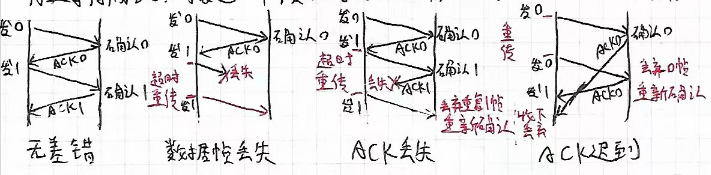 发0
确认0
ACK0
发1
确认1
ACK1
无差错
发0
确认0
ACK0
发1
丢失
超时
重传
发1
数据帧丢失
发0
确认0
ACK0
发1
确认1
超时
重传
丢失
ACK1
发1
丢弃重复1帧
重新确认
ACK丢失
发0
确认0
重
传
ACK0
发0
丢弃0帧
重新确认
ACK0
发1
收下
丢弃
ACK迟到